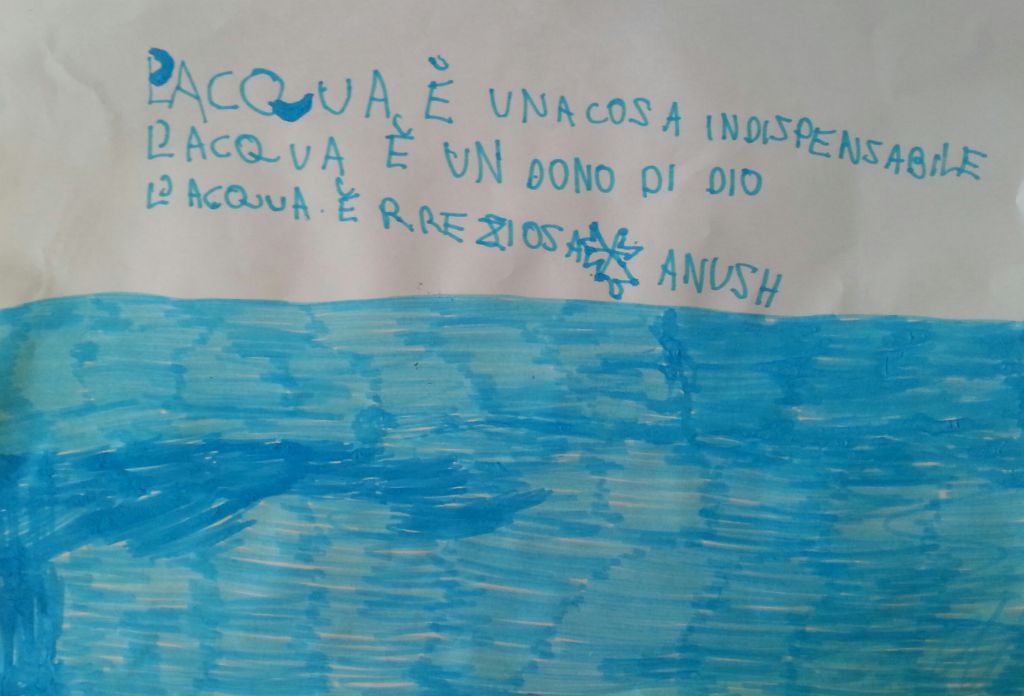 L'ACQUA È UNA COSA INDISPENSABILE
L'ACQUA È UN DONO DI DIO
L'ACQUA È RREZIOSA ANUSH